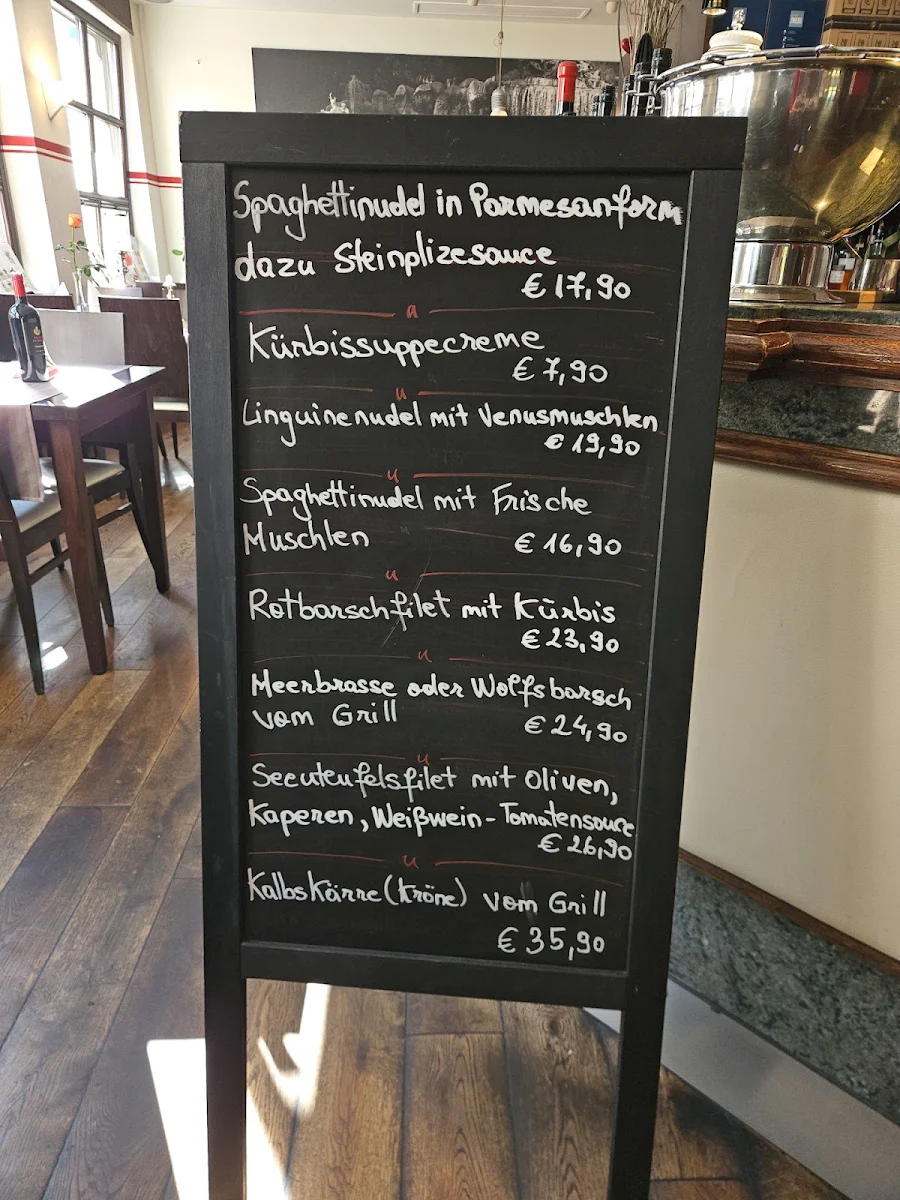 Spaghettinudel in Parmesanform
dazu Steinplizesauce
€ 17,90
Kürbissuppecreme
€ 7,90
Linguinenudel mit Venusmuschlen
€ 19,90
Spaghettinudel mit Frische
Muschlen € 16,90
Rotbarschfilet mit Kürbis
€ 23,90
Meerbrasse oder Wolfsbarsch
vom Grill € 24,90
Seeuteufelsfilet mit Oliven,
Kaperen, Weißwein-Tomatensouce
€ 26,90
KalbsKärre (Kröne) vom Grill
€ 35,90